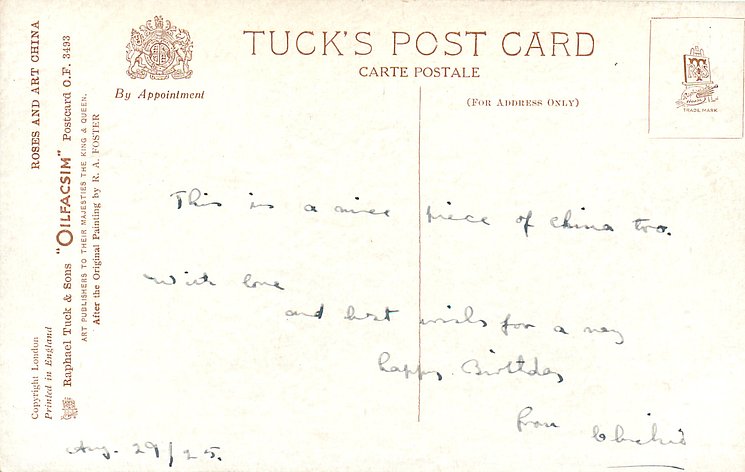 ROSES AND ART CHINA
Raphael Tuck & Sons "OILFACSIM" Postcard O.F. 3493
ART PUBLISHERS TO THEIR MAJESTIES THE KING & QUEEN.
After the Original Painting by R. A. FOSTER
Copyright London
Printed in England
By Appointment
TUCK'S POST CARD
CARTE POSTALE
(FOR ADDRESS ONLY)
TRADE MARK
This is a nice piece of China too.
With love
and best wishes for a very
happy Birthday
from
Aug. 29/25.